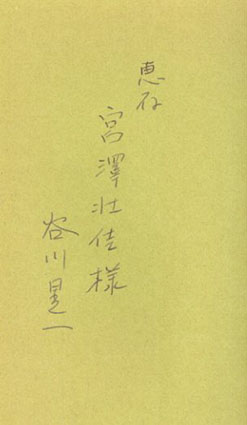 恵存
宮澤壮佳様
谷川晃一